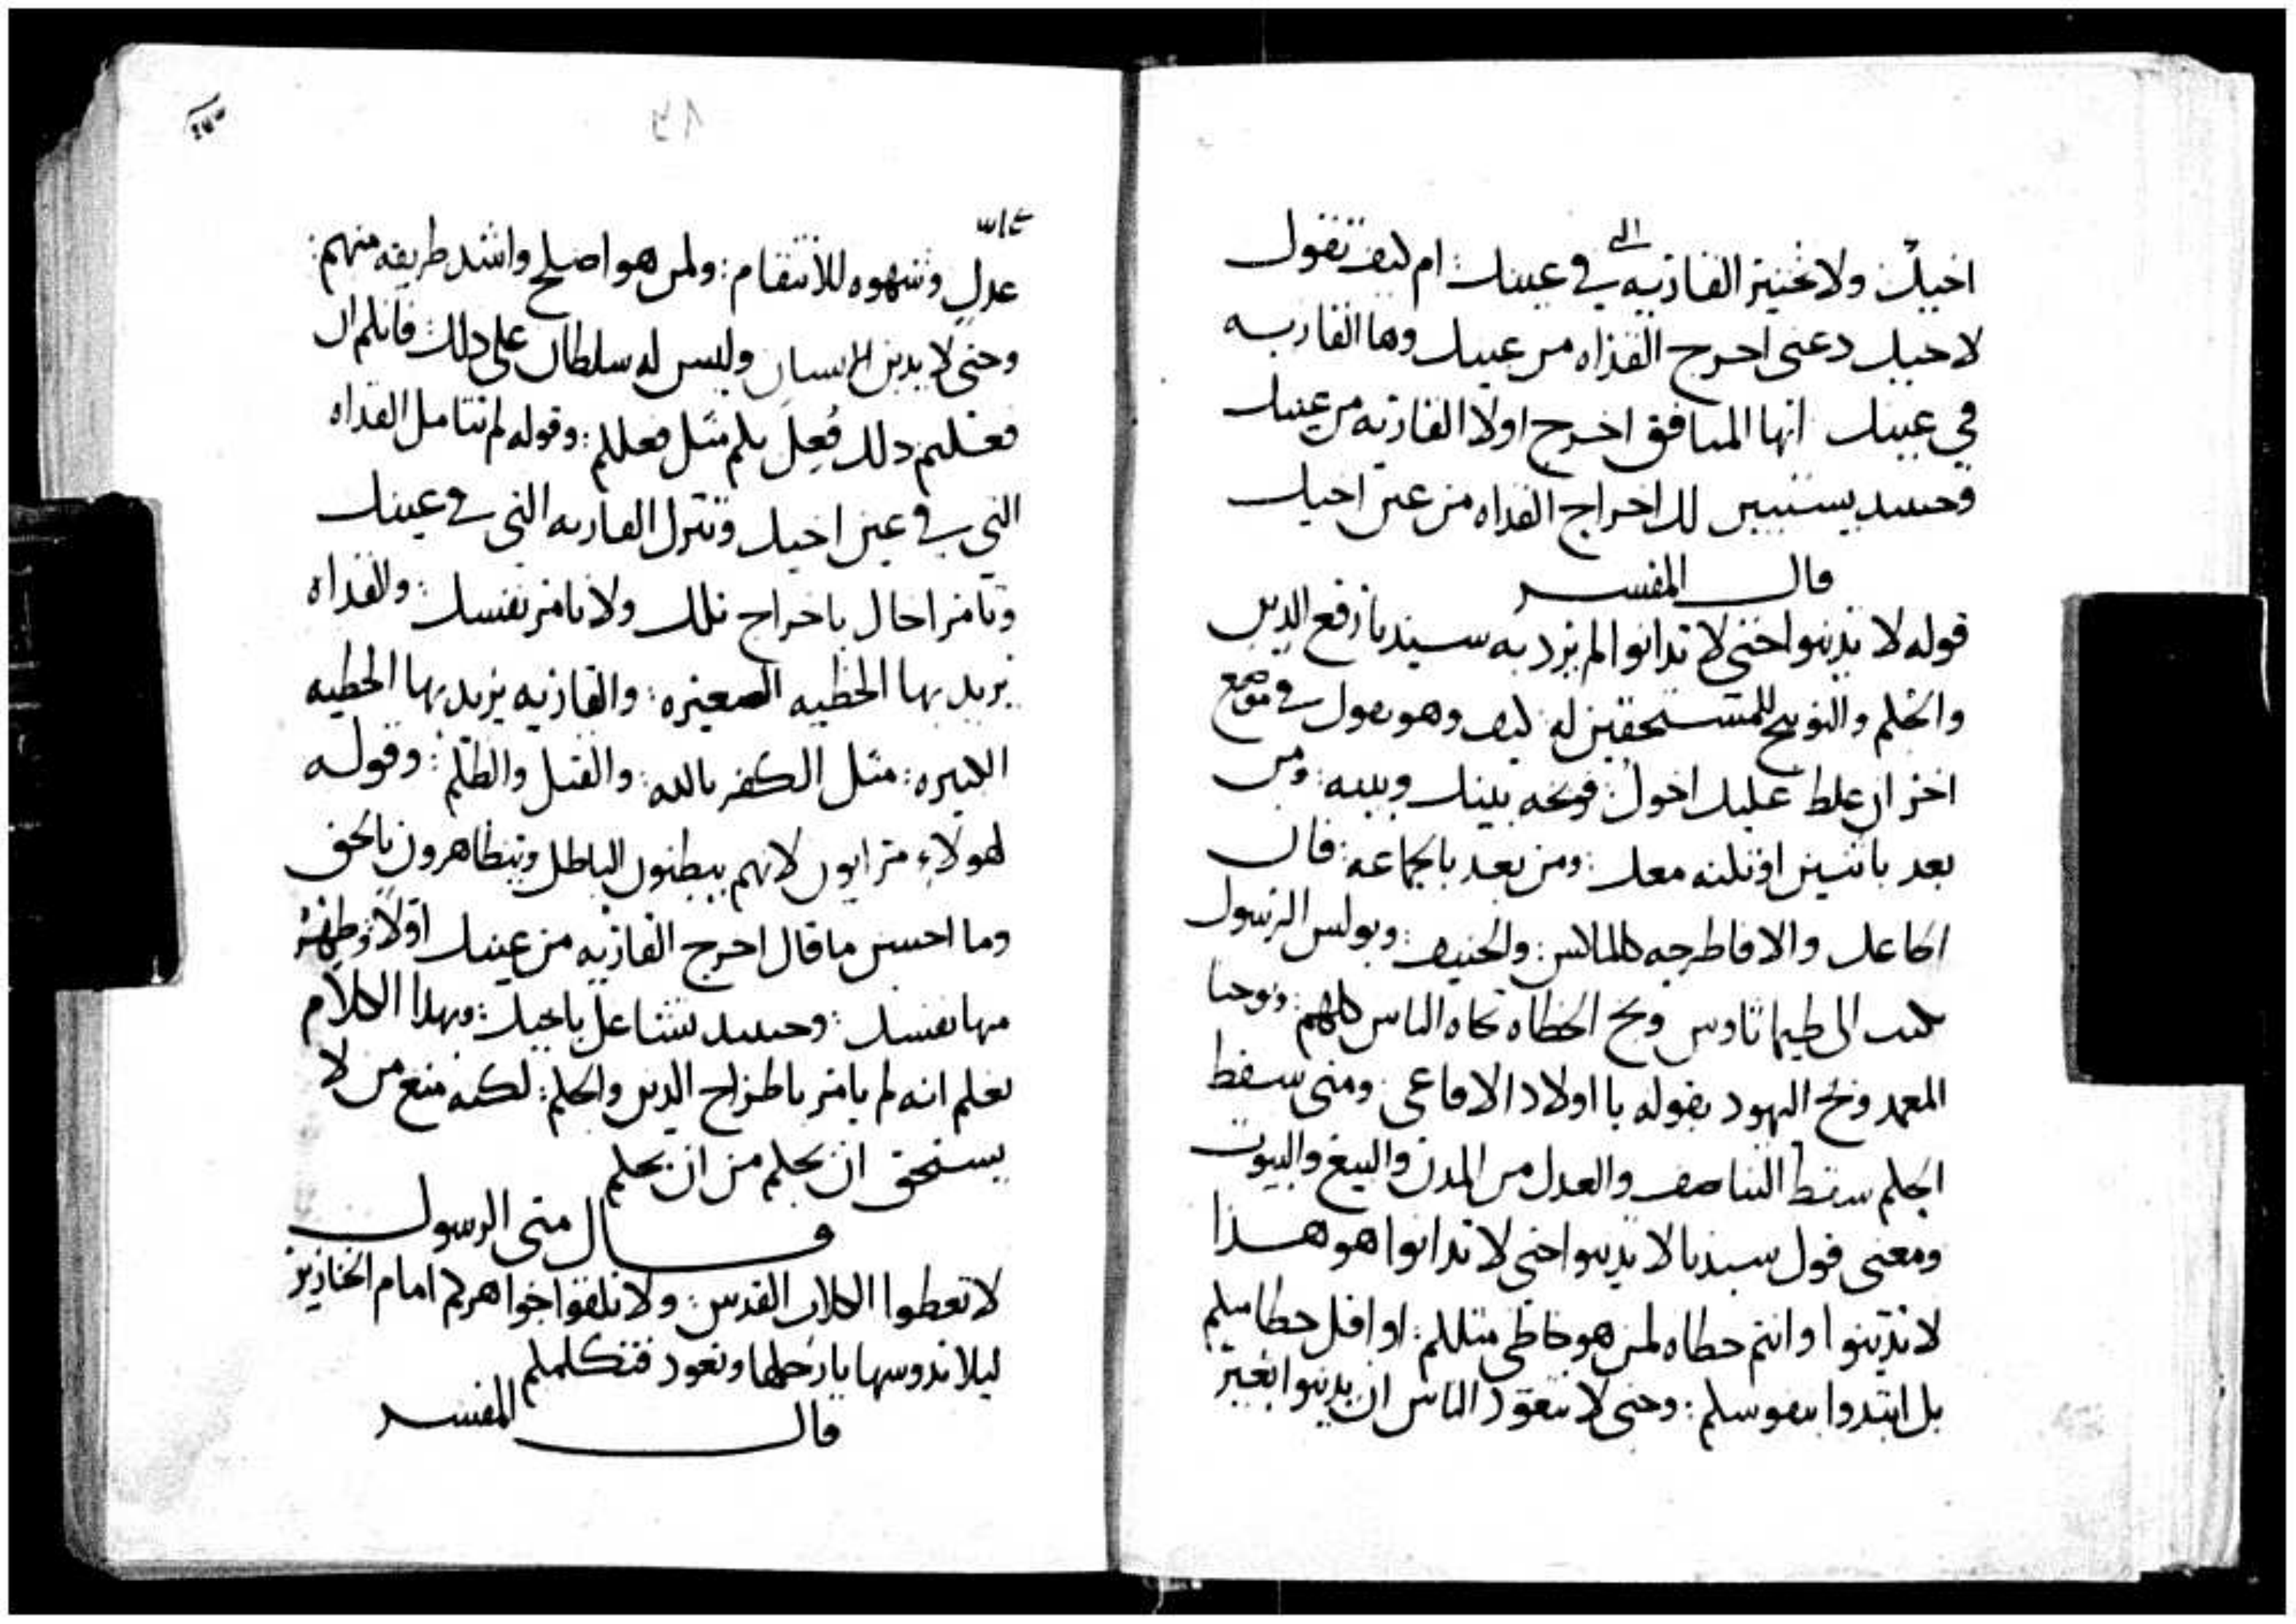 اخيك ولا تختبر القاريه الي في عينك: ام كيف تقول
لاخيك دعني اخرج القذاه من عينك وها القاريه
في عينك ايها المنافق اخرج اولا القاريه من عينك
وحينيد يستبين لك اخراج القذاه من عين اخيك
قال المفسر
قوله لا تدينوا حتي لا تدانوا لم يرد به سيدنا رفع الدين
والحكم والتوبيخ للمستحقين له كيف وهو يقول في موضع
اخر ان غلط عليك اخوك: فوبخه بينك وبينه: ومن
بعد باثنين او ثلثه معك: ومن بعد بالجماعه: فان
اطاعك والا فاطرحه كالماكس: والحنيف: وبولس الرسول
كتب الى طيماثاوس وبخ الخطاه تجاه الناس كلهم: ويوحنا
المعمد وبخ اليهود بقوله يا اولاد الافاعي: ومتي سقط
الحكم سقط التناصف والعدل من المدن والبيع والبيوت
ومعني قول سيدنا لا تدينوا حتي لا تدانوا هو هذا
لا تدينوا وانتم خطاه لمن هو خاطي مثلكم: او اقل خطا منكم
بل ابتدوا بنفوسكم: وحتي لا يتعود الناس ان يدينوا بغير
عدل وشهوه للانتقام: ولمن هو اصلح واشد طريقه منهم:
وحتي لا يدين الانسان وليس له سلطان علي ذلك: فانكم ان
فعلتم ذلك فُعِل بكم مثل فعلكم: وقوله لم تتامل القذاه
التي في عين اخيك وتترك القاريه التي في عينك
وتامر اخاك باخراج تلك ولا تامر نفسك: والقذاه
يريد بها الخطيه الصغيره: والقاريه يريد بها الخطيه
الكبيره: مثل الكفر بالله: والقتل والظلم: وقوله
لهولاء مرايون لانهم يبطنون الباطل ويتظاهرون بالحق
وما احسن ما قال اخرج القاريه من عينك اولاً: وطهر
منها نفسك: وحينيد تشاغل باخيك: وبهذا الكلام
نعلم انه لم يامر باطراح الدين والحكم: لكنه منع من لا
يستحق ان يحكم من ان يحكم
قال متى الرسول
لا تعطوا الكلاب القدس: ولا تلقوا جواهركم امام الخنازير
ليلا تدوسها بارجلها وتعود فتكلمكم
قال المفسر